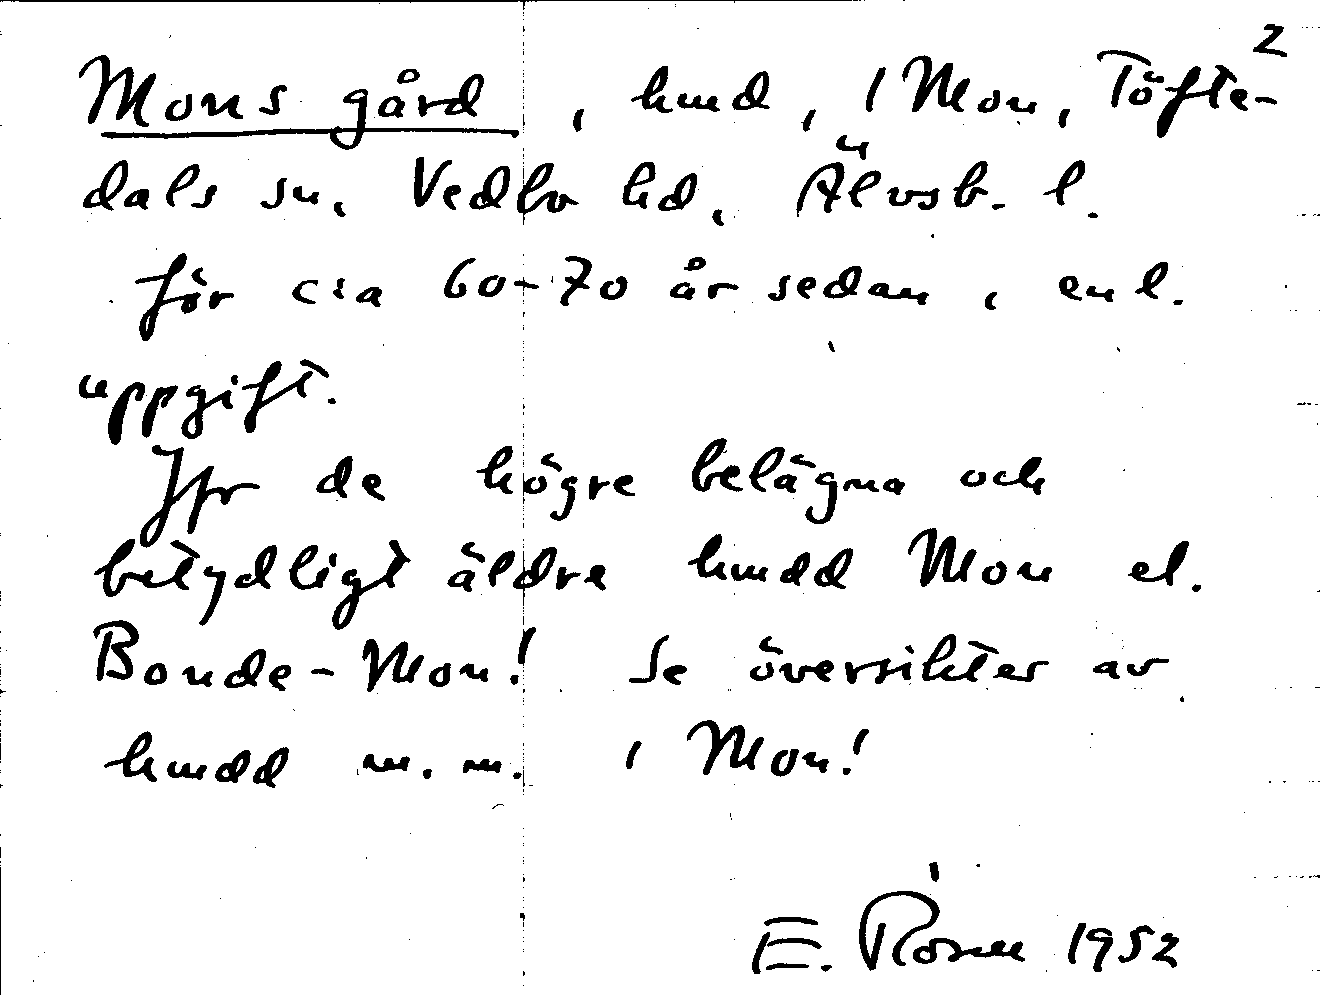 2
Mons gård, hmd, i Mon, Töfte-
dals sn, Vedbo hd, Älvsb. l.
för c:a 60-70 år sedan, enl.
uppgift.
Jfr de högre belägna och
betydligt äldre hmdd Mon el.
Bonde-Mon! Se översikter av
hmdd m.m. i Mon!
E. Rosell 1952